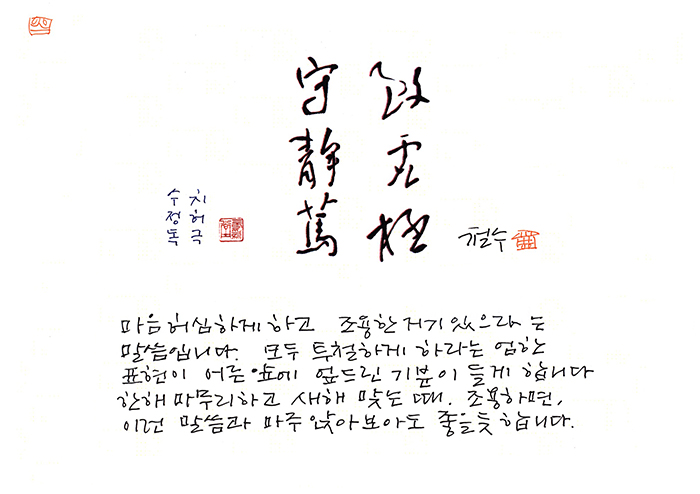 致虛極
守靜篤
치허극
수정독
철수
마음허심하게 하고 조용한 거기 있으라 는
말씀입니다. 모두 투철하게 하라는 엄한
표현이 어른 앞에 엎드린 기분이 들게 합니다
한해 마무리하고 새해 맞는 때. 조용하면,
이런 말씀과 마주 앉아보아도 좋을듯 합니다.